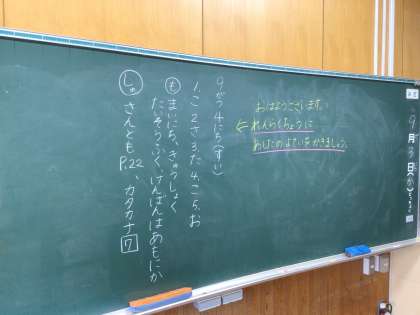 9月3日(か)
おはようございます。
れんらくちょうに
あしたのよていをかきましょう。
9がつ4にち(すい)
1.こ 2.さ 3.た 4.こ 5.お
も まいにち、きゅうしょく
たいそうふく、けんばんはあもにか
しゅ さんとも
P.22、カタカナ7